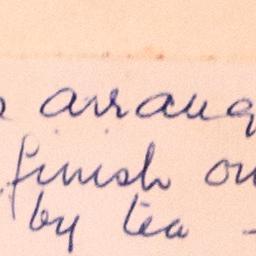 arrang
finish on
by tea -